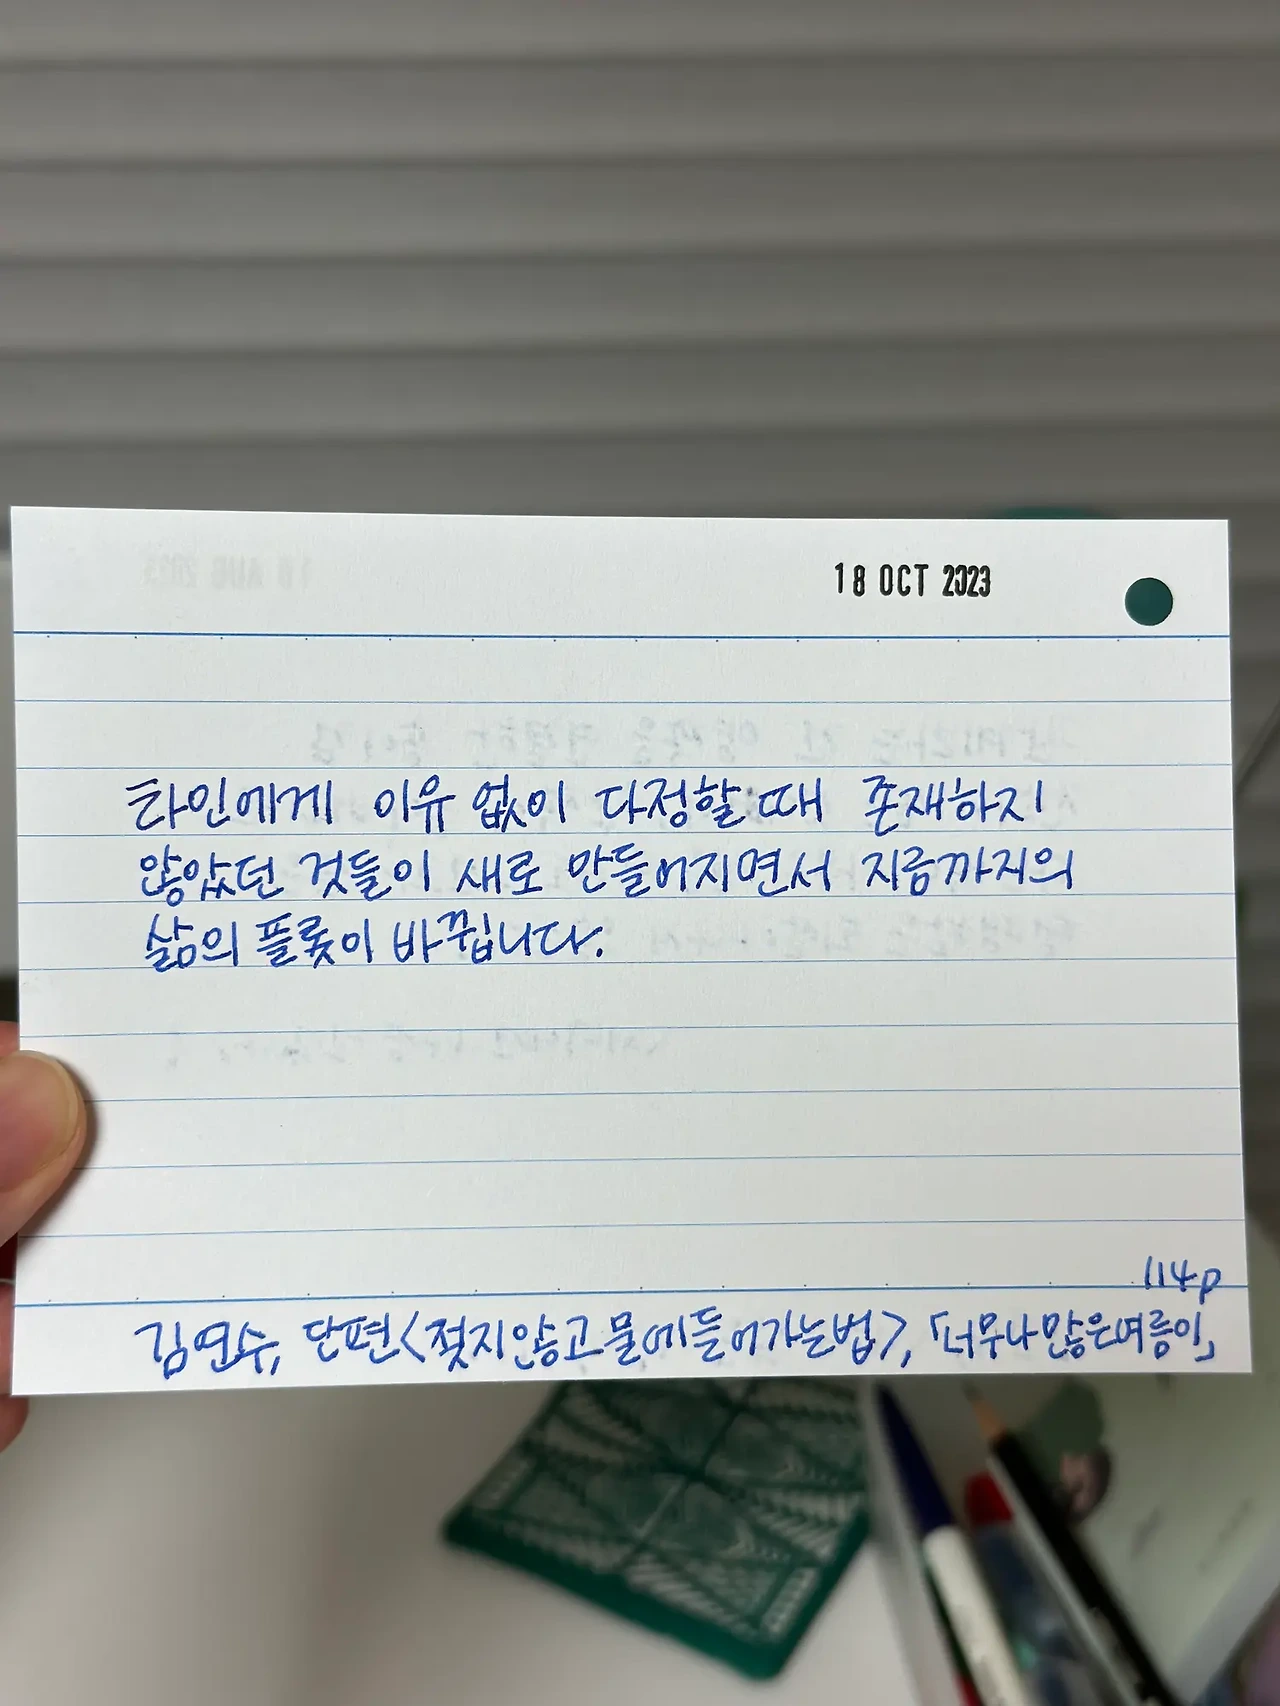 18 OCT 2023
타인에게 이유 없이 다정할 때 존재하지
않았던 것들이 새로 만들어지면서 지금까지의
삶의 플롯이 바뀝니다.
114p
김연수, 단편<젖지않고물에들어가는법>, 「너무나많은여름이」